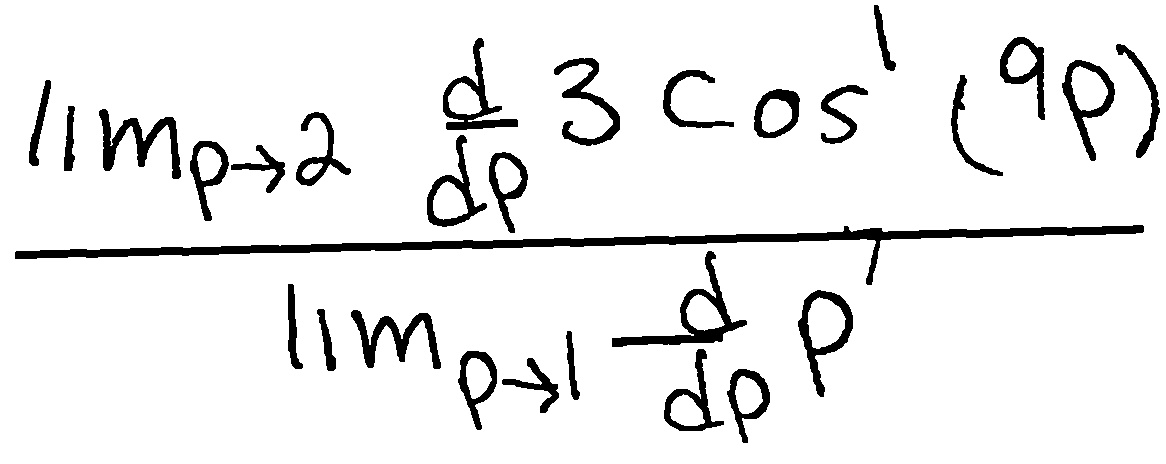 \frac{\lim_{p \to 2} \frac{d}{dp} 3 \cos^1 (9p)}{\lim_{p \to 1} \frac{d}{dp} p^1}